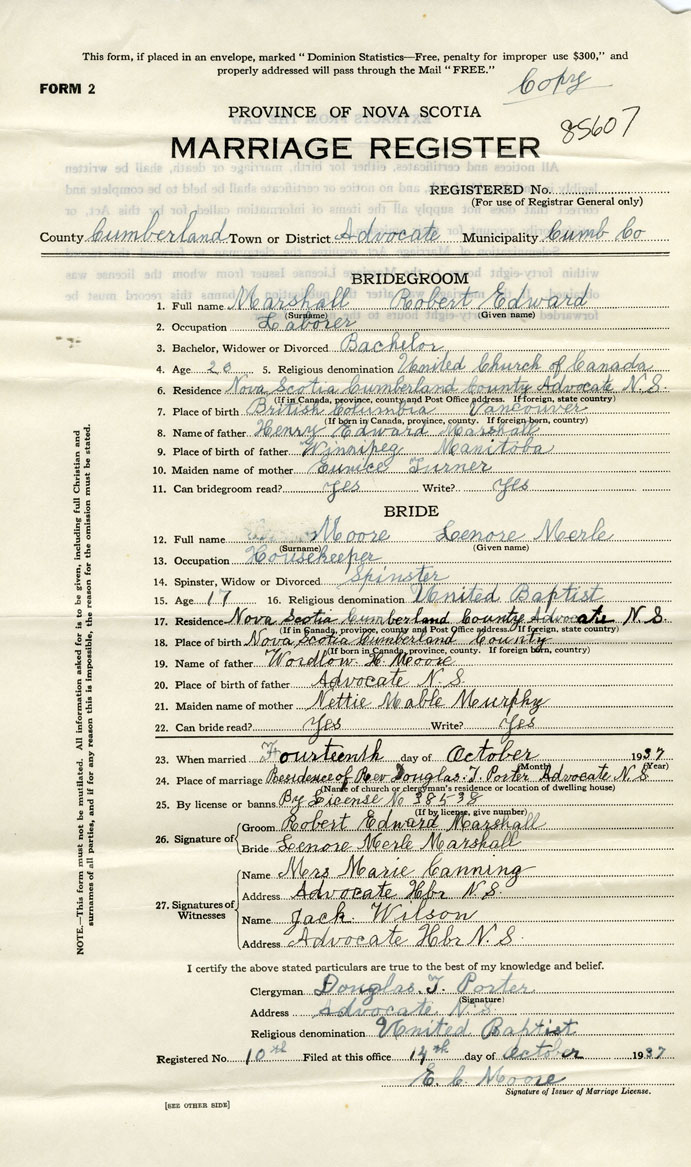 This form, if placed in an envelope, marked "Dominion Statistics—Free, penalty for improper use $300," and
properly addressed will pass through the Mail "FREE."
Copy
FORM 2
PROVINCE OF NOVA SCOTIA
85607
MARRIAGE REGISTER
REGISTERED No.
(For use of Registrar General only)
County Cumberland Town or District Advocate Municipality Cumb Co
BRIDEGROOM
1. Full name Marshall Robert Edward
(Surname) (Given name)
2. Occupation Laborer
3. Bachelor, Widower or Divorced Bachelor
4. Age 20 5. Religious denomination United Church of Canada
6. Residence Nova Scotia Cumberland County Advocate N.S.
(If in Canada, province, county and Post Office address. If foreign, state country)
7. Place of birth British Columbia Vancouver
(If born in Canada, province, county. If foreign born, country)
8. Name of father Henry Edward Marshall
9. Place of birth of father Winnipeg Manitoba
10. Maiden name of mother Eunice Turner
11. Can bridegroom read? Yes Write? Yes
BRIDE
12. Full name Moore Lenore Merle
(Surname) (Given name)
13. Occupation Housekeeper
14. Spinster, Widow or Divorced Spinster
15. Age 17 16. Religious denomination United Baptist
17. Residence Nova Scotia Cumberland County Advocate N.S.
(If in Canada, province, county and Post Office address. If foreign, state country)
18. Place of birth Nova Scotia Cumberland County
(If born in Canada, province, county. If foreign born, country)
19. Name of father Wordlow H. Moore
20. Place of birth of father Advocate N.S.
21. Maiden name of mother Nettie Mable Murphy
22. Can bride read? Yes Write? Yes
23. When married Fourteenth day of October 1937
(Month) (Year)
24. Place of marriage Residence of Rev Douglas. T. Porter Advocate N.S
(Name of church or clergyman's residence or location of dwelling house)
25. By license or banns By License No 38538
(If by license, give number)
26. Signature of
Groom Robert Edward Marshall
Bride Lenore Merle Marshall
27. Signatures of Witnesses
Name Mrs Marie Canning
Address Advocate Hbr N.S.
Name Jack Wilson
Address Advocate Hbr N.S.
I certify the above stated particulars are true to the best of my knowledge and belief.
Clergyman Douglas. T. Porter
(Signature)
Address Advocate N.S
Religious denomination United Baptist
Registered No. 10th Filed at this office 14th day of October 1937
E. C. Moore
Signature of Issuer of Marriage License.
[SEE OTHER SIDE]
NOTE.—This form must not be mutilated. All information asked for is to be given, including full Christian and
surnames of all parties, and if for any reason this is impossible, the reason for the omission must be stated.